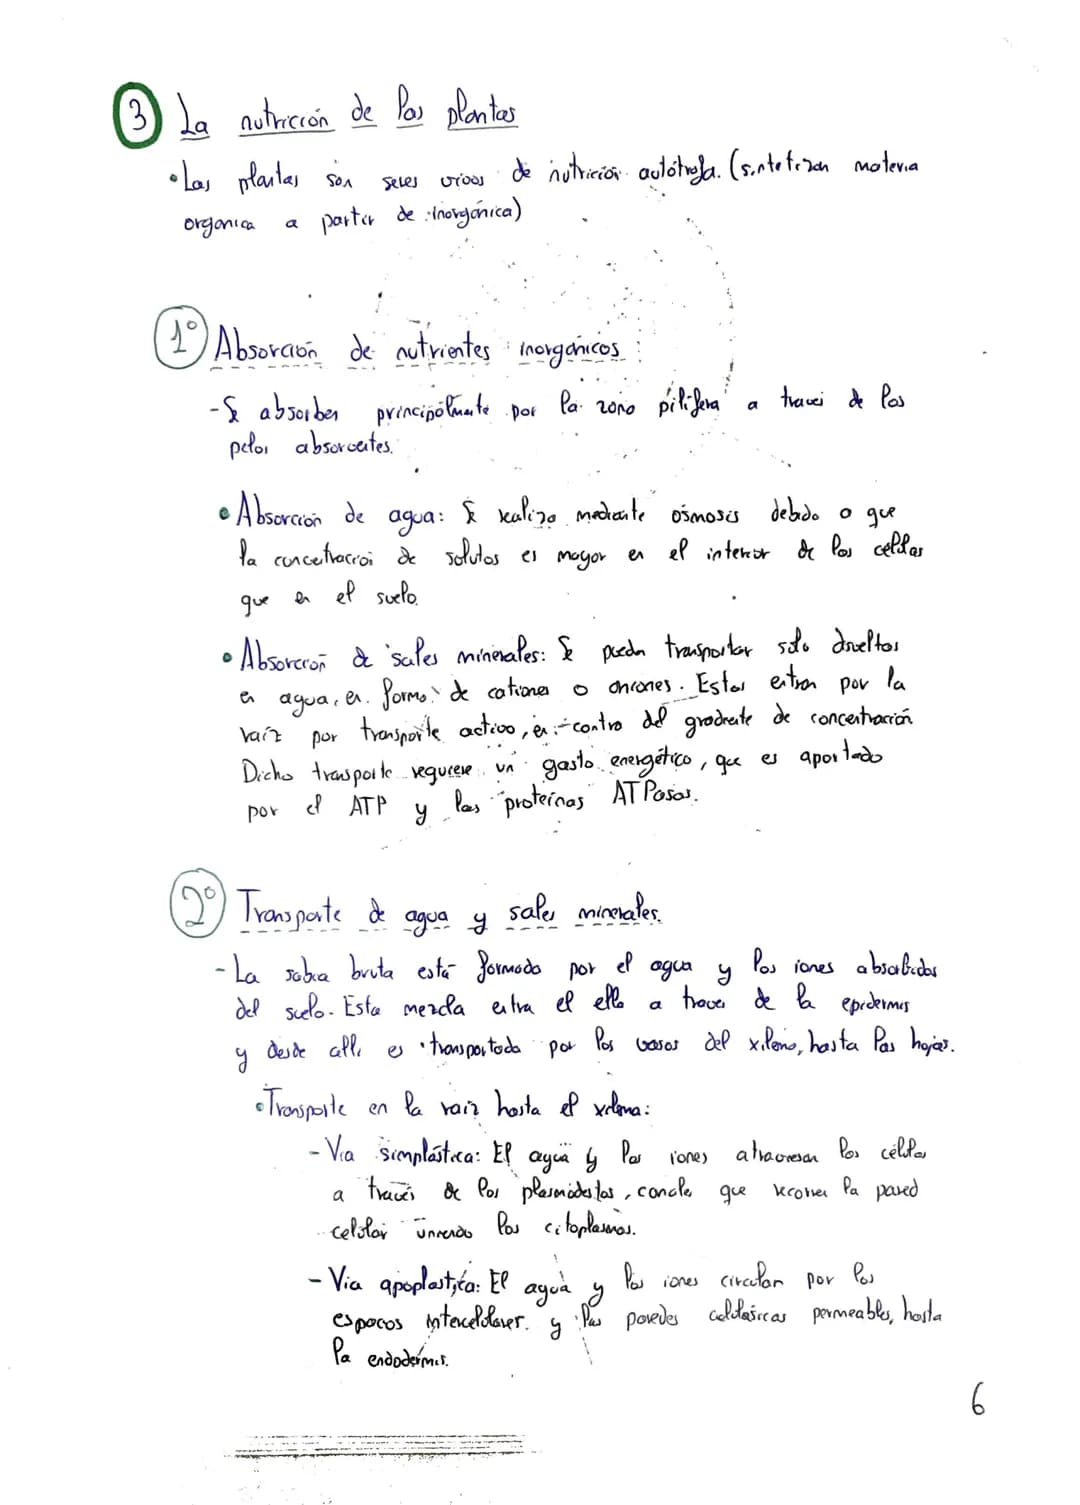 3 La nutrición de las plantas
• Las plantas son seres vivos de nutrición autótrofa. (sintetizan materia
organica a partir de inorgánica)
1º Absorción de nutrientes inorgánicos:
- Se absorben principalmente por la zona pilífera a traves de los
pelos absorventes.
• Absorción de agua: Se realiza mediante ósmosis debido a que
la concetracion de solutos es mayor en el interior de las celulas
que en el suelo.
• Absorción de sales minerales: Se pueden transportar solo disueltos
en agua, en forma de cationes o aniones. Estos entran por la
raíz por transporte activo, en contra del gradiente de concentración.
Dicho transporte requiere un gasto energético, que es aportado
por el ATP y las proteínas ATPasas.
2º Transporte de agua y sales minerales.
- La sabia bruta está formada por el agua y los iones absorbidos
del suelo. Esta mezcla entra el ello a traves de la epidermis
y desde alli es transportada por los vasos del xilema, hasta las hojas.
• Transporte en la raiz hasta el xilema:
- Via simplástica: El agua y los iones atraviesan las células
a través de los plasmodestos, canales que recorren la pared
celular uniendo los citoplasmas.
- Via apoplastica: El agua y los iones circulan por los
espacos intercelulares y las paredes celulósicas permeables, hasta
la endodermis.
6